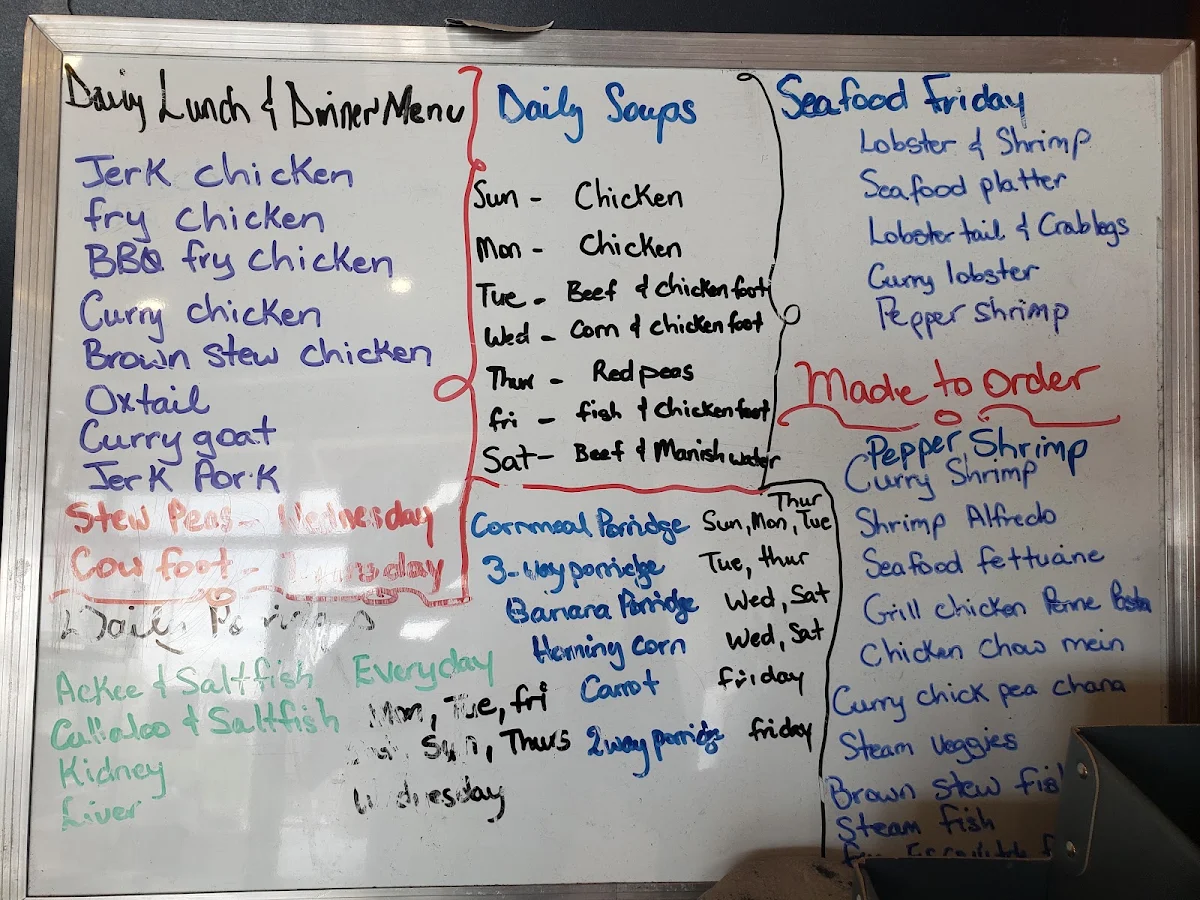 Daily Lunch & Dinner Menu
Jerk chicken
fry chicken
BBQ fry chicken
Curry chicken
Brown stew chicken
Oxtail
Curry goat
Jerk Pork
Stew Peas - Wednesday
Cow foot -
Daily
Ackee & Saltfish Everyday
Callaloo & Saltfish Mon, Tue, fri
Kidney Sun, Thurs
Liver Wednesday
Daily Soups
Sun - Chicken
Mon - Chicken
Tue - Beef & chicken foot
Wed - Corn & chicken foot
Thur - Red peas
fri - fish & chicken foot
Sat - Beef & Manish water
Thur
Cornmeal Porridge Sun, Mon, Tue
3-way porridge Tue, thur
Banana Porridge Wed, Sat
Homing corn Wed, Sat
Carrot friday
2way porridge friday
Seafood Friday
Lobster & Shrimp
Seafood platter
Lobster tail & Crab legs
Curry lobster
Pepper shrimp
Made to order
Pepper Shrimp
Curry Shrimp
Shrimp Alfredo
Seafood fettucine
Grill chicken Penne Pasta
Chicken chow mein
Curry chick pea chana
Steam veggies
Brown stew fish
Steam fish